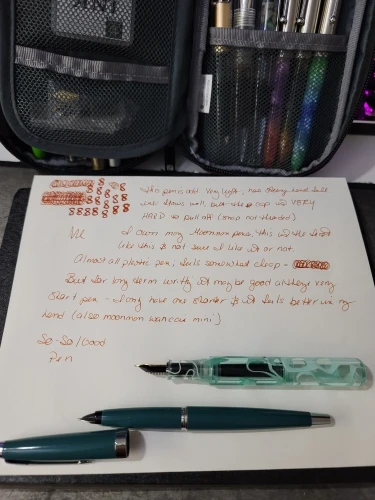 INK
This pen is not very light, has strong nib feels
ink flows well, but the cap is VERY
HARD to pull off (snap not threaded)
I own many Moonman pens, this is the
like this & not sure I like it or not.
Almost all plastic pen, feels somewhat cheap -
But for long term writing it may be good at very
short pen - I only have one shorter & it feels better in my
hand (also moonman wancai mini)
So-So/Good
Pen